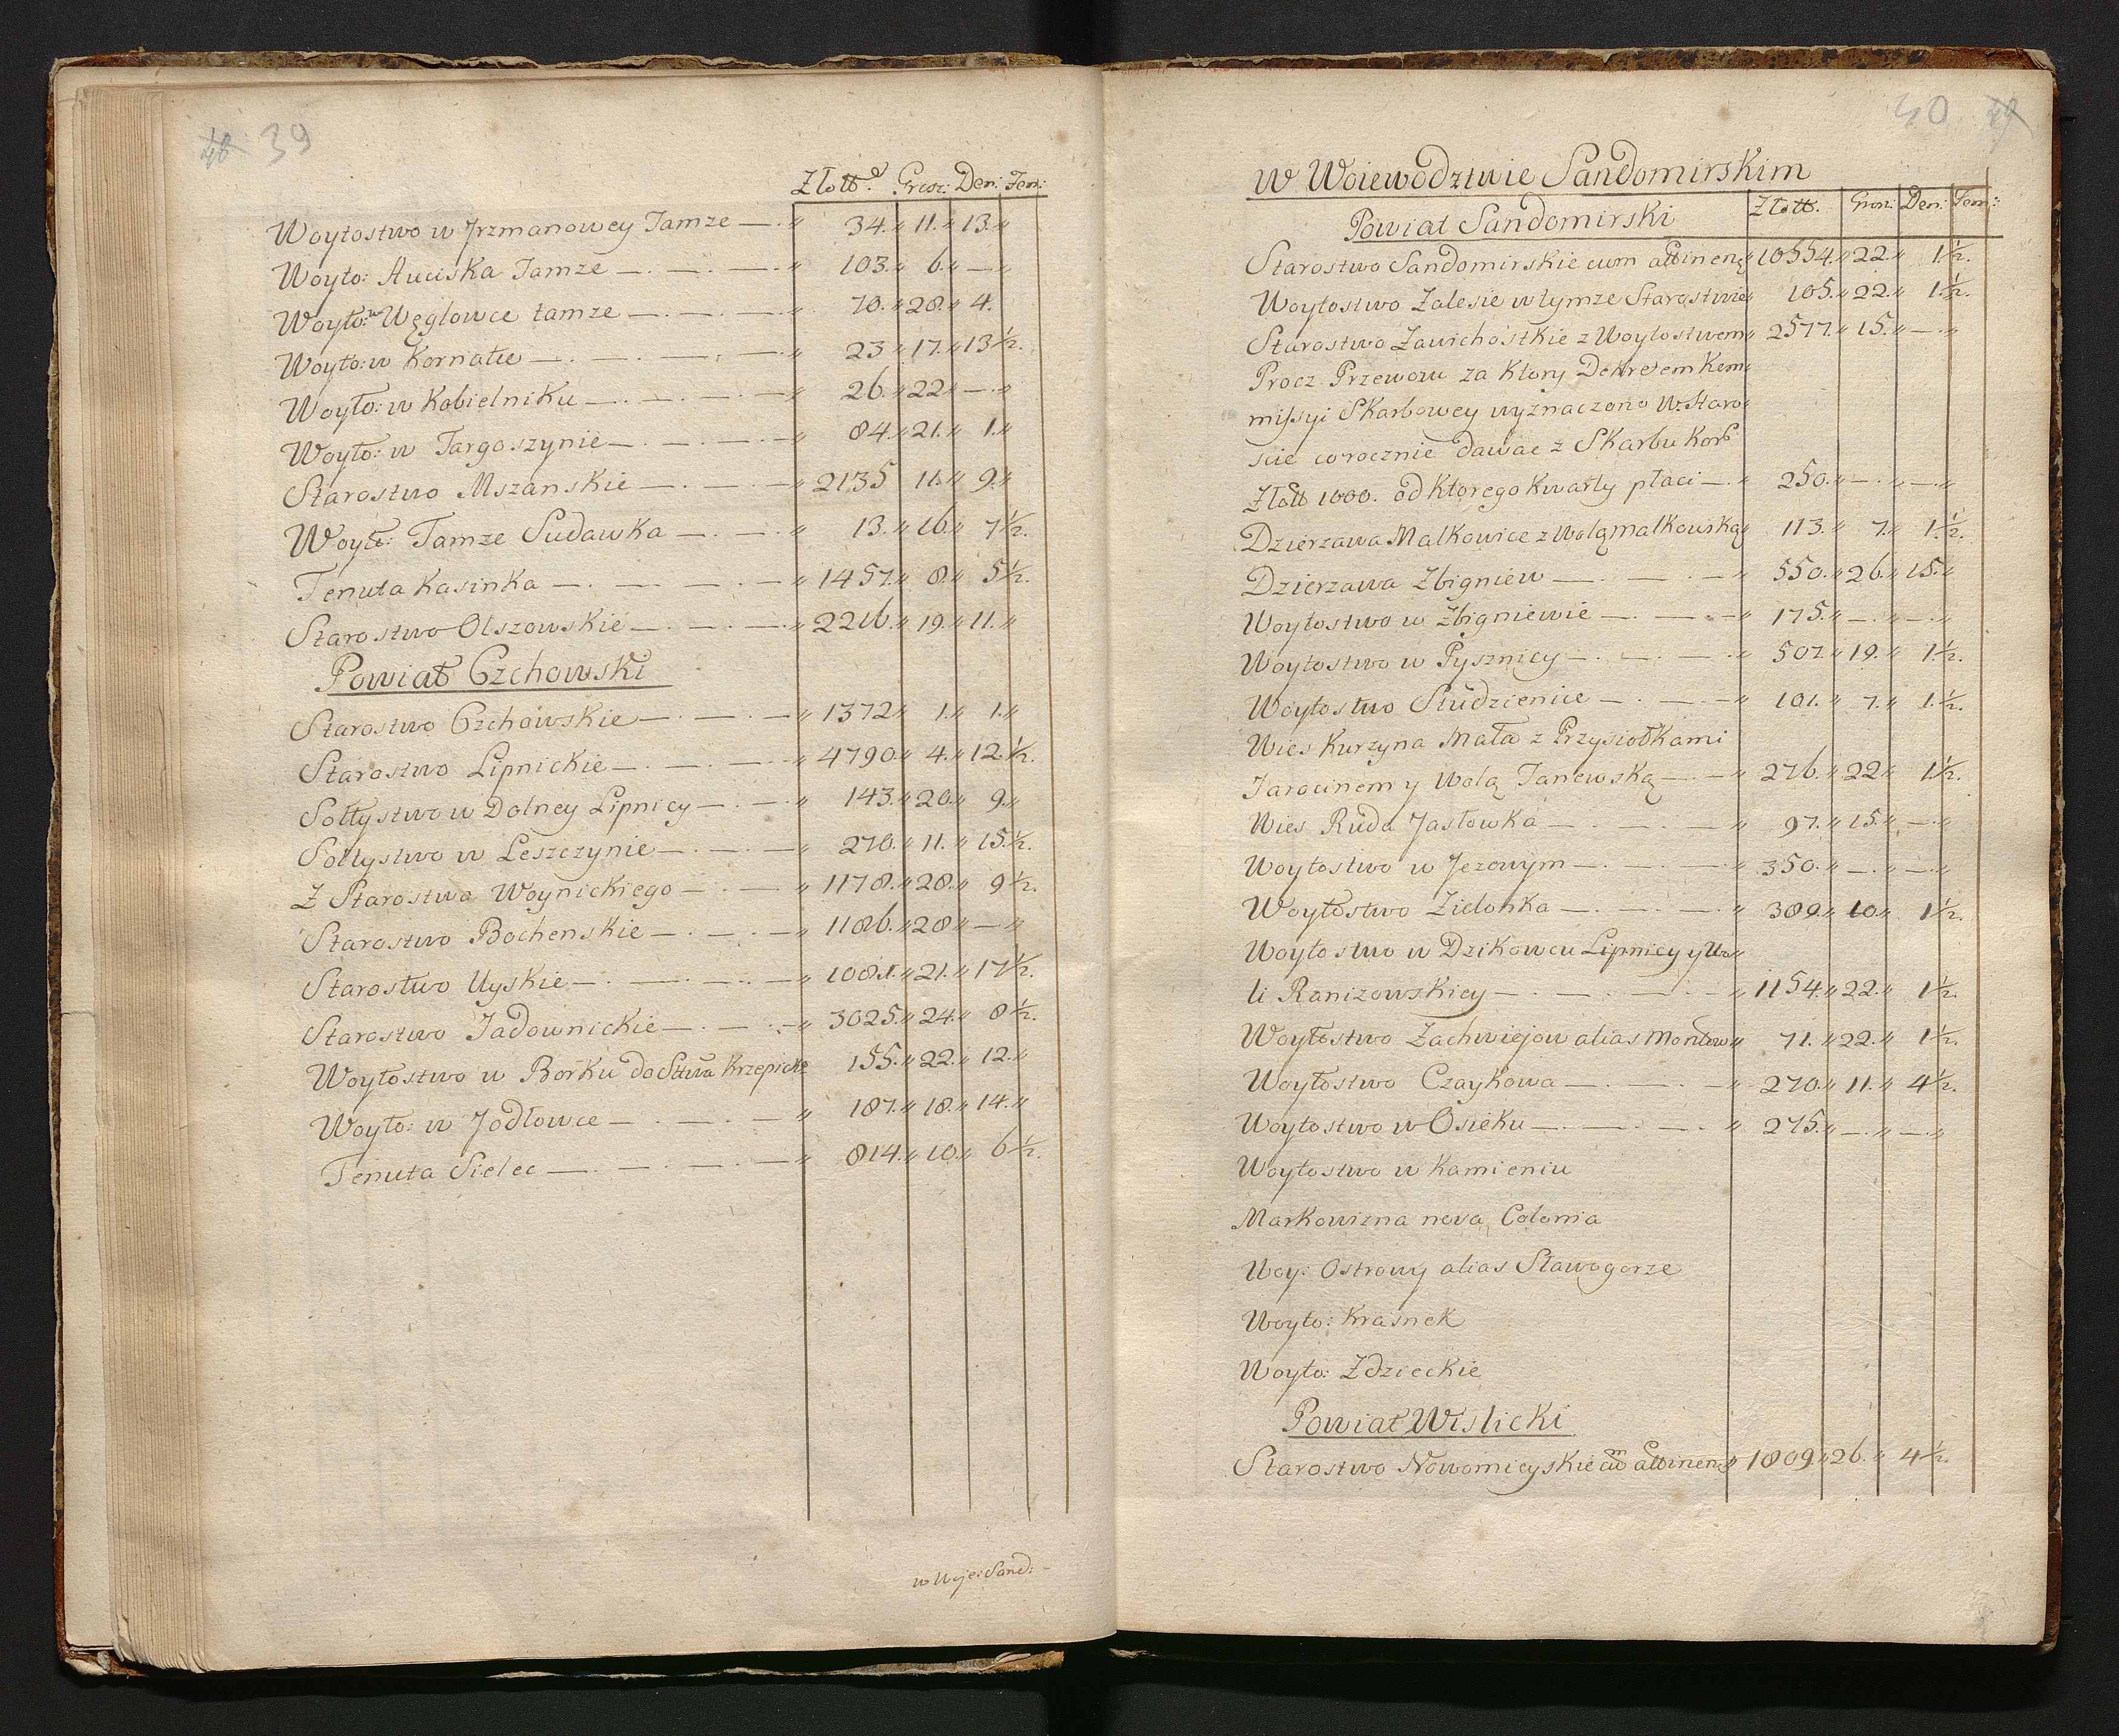 39
Złott. Grosz: Den: Tern:
Woytostwo w Jrzmanowey Tamze —.〃 34.〃 11.〃 13.〃
Woyto: Auciska Tamze —.—.—.〃 103.〃 6.〃 —〃
Woyto: w Węglowce tamze —.—.—.〃 70.〃 28.〃 4.
Woyto: w Kornatce —.—.—.〃 23〃 17.〃 13½.
Woyto: w Kobielniku —.—.—.〃 26.〃 22〃 —.〃
Woyto: w Targoszynie —.—.—〃 84.〃 21.〃 1.〃
Starostwo Mszanskie —.—.—〃 2135 11.〃 9.〃
Woyto: Tamze Sudawka —.—.〃 13.〃 16.〃 7½.
Tenuta Kasinka —.—.—.—〃 1457.〃 8.〃 5½.
Starostwo Olszowskie —.—.—.〃 2216.〃 19.〃 11.〃
Powiat Czchowski
Starostwo Czchowskie —.—.—〃 1372〃 1.〃 1.〃
Starostwo Lipnickie —.—.—.〃 4790.〃 4.〃 12.½.
Sołtystwo w Dolney Lipnicy —.—.〃 143.〃 20.〃 9.〃
Sołtystwo w Leszczynie —.—.—〃 270.〃 11.〃 15.½.
Z Starostwa Woynickiego —.—〃 1178.〃 28.〃 9½.
Starostwo Bochenskie —.—.—〃 1186.〃 28〃 —.〃
Starostwo Uyskie —.—.—.—〃 1081.〃 21.〃 17½.
Starostwo Jadownickie —.—.—〃 3025.〃 24.〃 8½.
Woytostwo w Borku do Sttwa Krzepick: 155.〃 22.〃 12.〃
Woyto: w Jodłowce —.—.—〃 187.〃 18.〃 14.〃
Tenuta Sielec —.—.—.—〃 814.〃 10.〃 6½.
w Woje: Sand:
40
w Woiewodztwie Sandomirskim
Powiat Sandomirski Złott. Grosz: Den: Tern:
Starostwo Sandomirskie cum attinen:〃 10554.〃 22.〃 1½.
Woytostwo Zalesie w tymze Starostwie〃 105.〃 22.〃 1.½.
Starostwo Zawichostkie z Woytostwem〃 2577.〃 15.〃 —.〃
Procz Przewozu za Ktory Dekretem Kom〃
missyi Skarbowey wyznaczono W. Staro〃
scie corocznie dawac z Skarbu Kor:
Złott 1000. od Ktorego Kwarty płaci —.〃 250.〃 —.〃 —.〃
Dzierzawa Malkowice z Wolą malkowską〃 113.〃 7.〃 1.½.
Dzierzawa Zbigniew —.—.—〃 550.〃 26.〃 15.〃
Woytostwo w Zbigniewie —.—.—〃 175.〃 —.〃 —.〃
Woytostwo w Pysznicy —.—.—.〃 507.〃 19.〃 1.½.
Woytostwo Studzienice —.—.—〃 101.〃 7.〃 1.½.
Wies Kurzyna Mała z Przysiołkami
Jarocinem y Wolą Tanewską —.—〃 276.〃 22〃 1½.
Wies Ruda Jastowka —.—.—〃 97.〃 15.〃 —.〃
Woytostwo w Jezowym —.—.—.〃 350.〃 —.〃 —.〃
Woytostwo Zielonka —.—.—.〃 389.〃 10.〃 1½.
Woytostwo w Dzikowcu Lipnicy y Wo〃
li Ranizowskiey —.—.—.—〃 1154.〃 22.〃 1½.
Woytostwo Zachwiejow alias Montow〃 71.〃 22.〃 1½.
Woytostwo Czaykowa —.—.—〃 270.〃 11.〃 4½.
Woytostwo w Osieku —.—.—.〃 275.〃 —.〃 —.〃
Woytostwo w Kamieniu
Markowizna nova Colonia
Woy: Ostrowy alias Stawogorze
Woyto: Krasnek
Woyto: Zdzieckie
Powiat Wislicki
Starostwo Nowomieyskie cum attinen:〃 1809.〃 26.〃 4½.